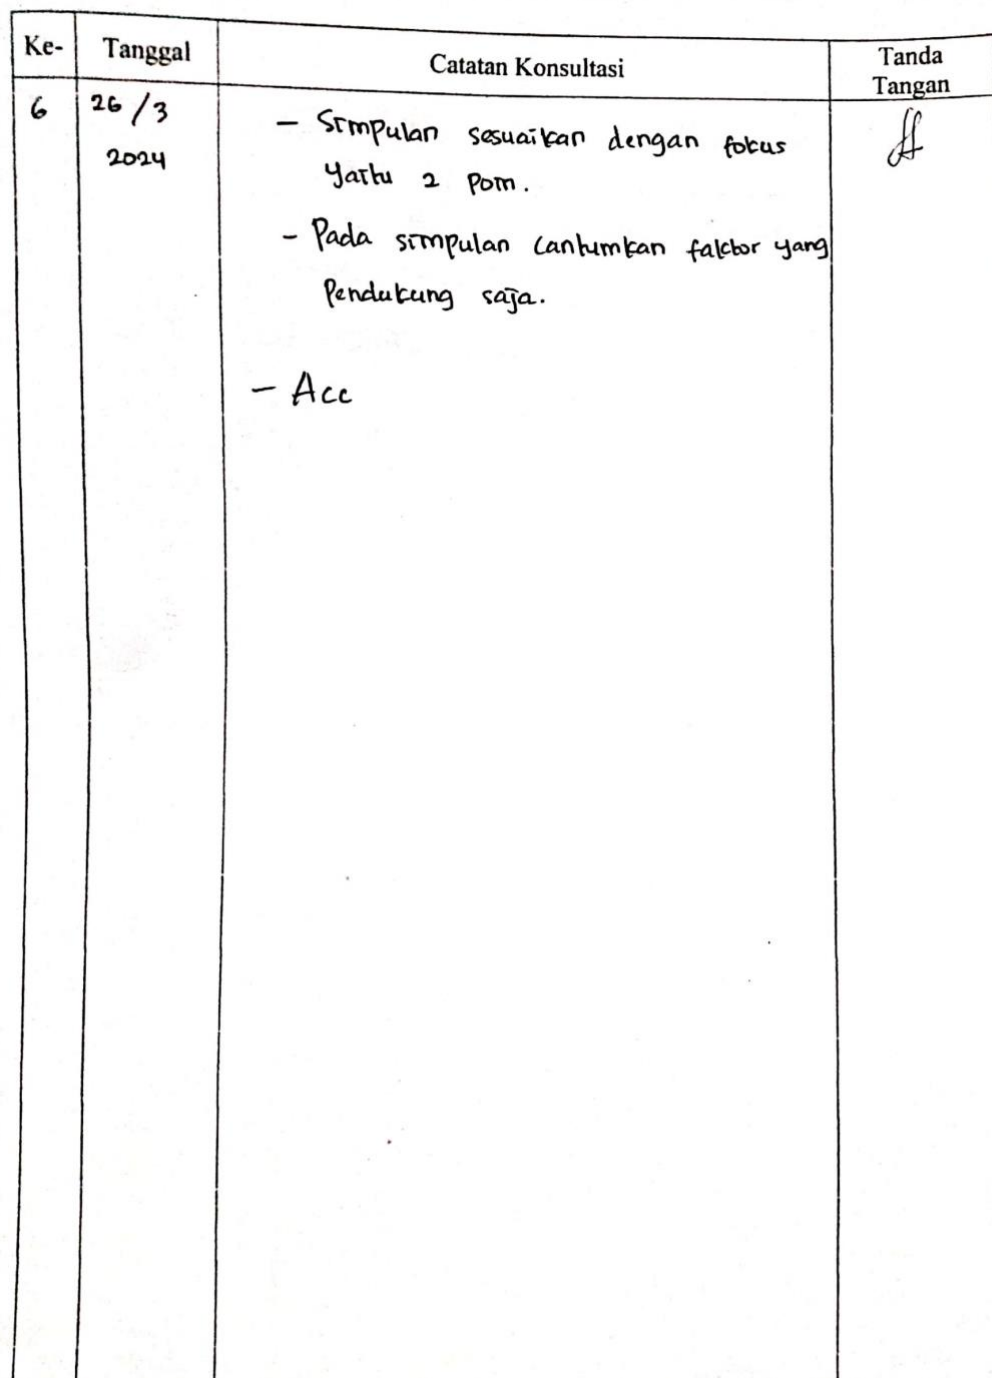 Ke- Tanggal Catatan Konsultasi Tanda Tangan
6 26/3 2024
- Simpulan sesuaikan dengan fokus
yaitu 2 Poin.
- Pada simpulan cantumkan faktor yang
Pendukung saja.
- Acc